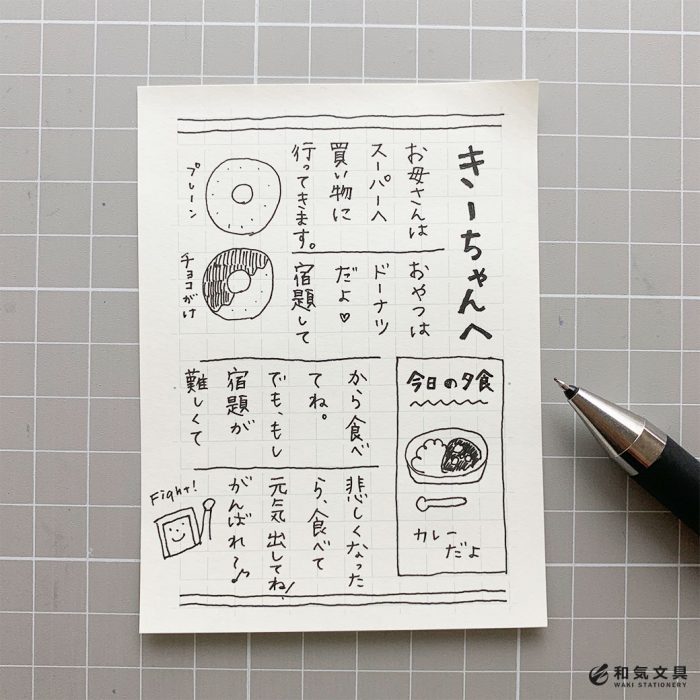 きーちゃんへ
お母さんは
スーパーへ
買い物に
行ってきます。
プレーン
おやつは
ドーナツ
だよ♡
宿題して
チョコがけ
から食べ
てね。
でも、もし
宿題が
難しくて
悲しくなった
ら、食べて
元気出してね!
がんばれ〜♪
Fight!
今日の夕食
カレー
だよ
和気文具
WAKI STATIONERY